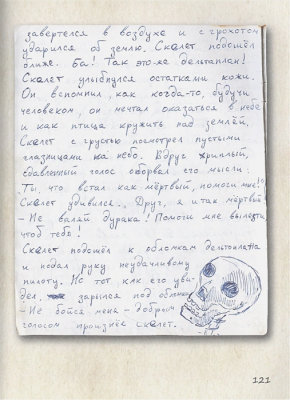 завертелся в воздухе и с грохотом
ударился об землю. Скелет подошёл
ближе. Ба! Так это же дельтаплан!
Скелет улыбнулся остатками кожи.
Он вспомнил, как когда-то, будучи
человеком, он мечтал оказаться в небе
и как птица кружить над землёй.
Скелет с грустью посмотрел пустыми
глазницами на небо. Вдруг хриплый,
сдавленный голос оборвал его мысли.
Ты, что встал как мёртвый, помоги мне!
Скелет удивился. Друг, я и так мёртвый
- Не валяй дурака! Помоги мне вылезти,
чтоб тебя!
Скелет подошёл к обломкам дельтоплана
и подал руку неудачливому
пилоту. Но тот как его уви-
дел, зарылся под обломки
- Не бойся меня - добрым
голосом произнёс Скелет.
121